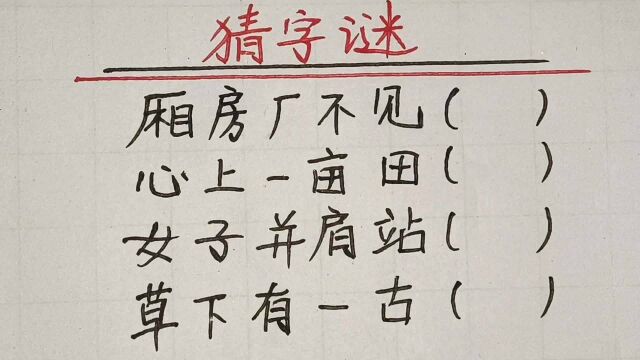 猜字谜
厢房厂不见( )
心上一亩田( )
女子并肩站( )
草下有一古( )